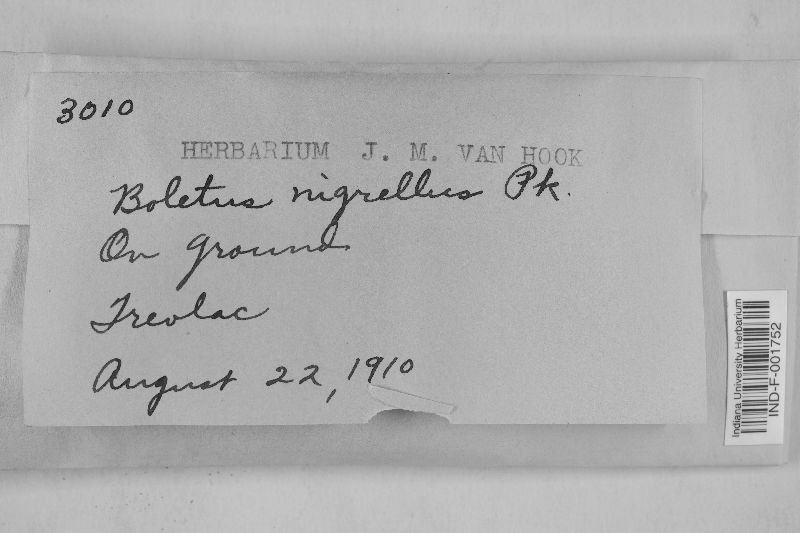 3010
HERBARIUM J. M. VAN HOOK
Boletus nigrellus Pk.
On ground
Trevlac
August 22, 1910
Indiana University Herbarium
IND-F-001752